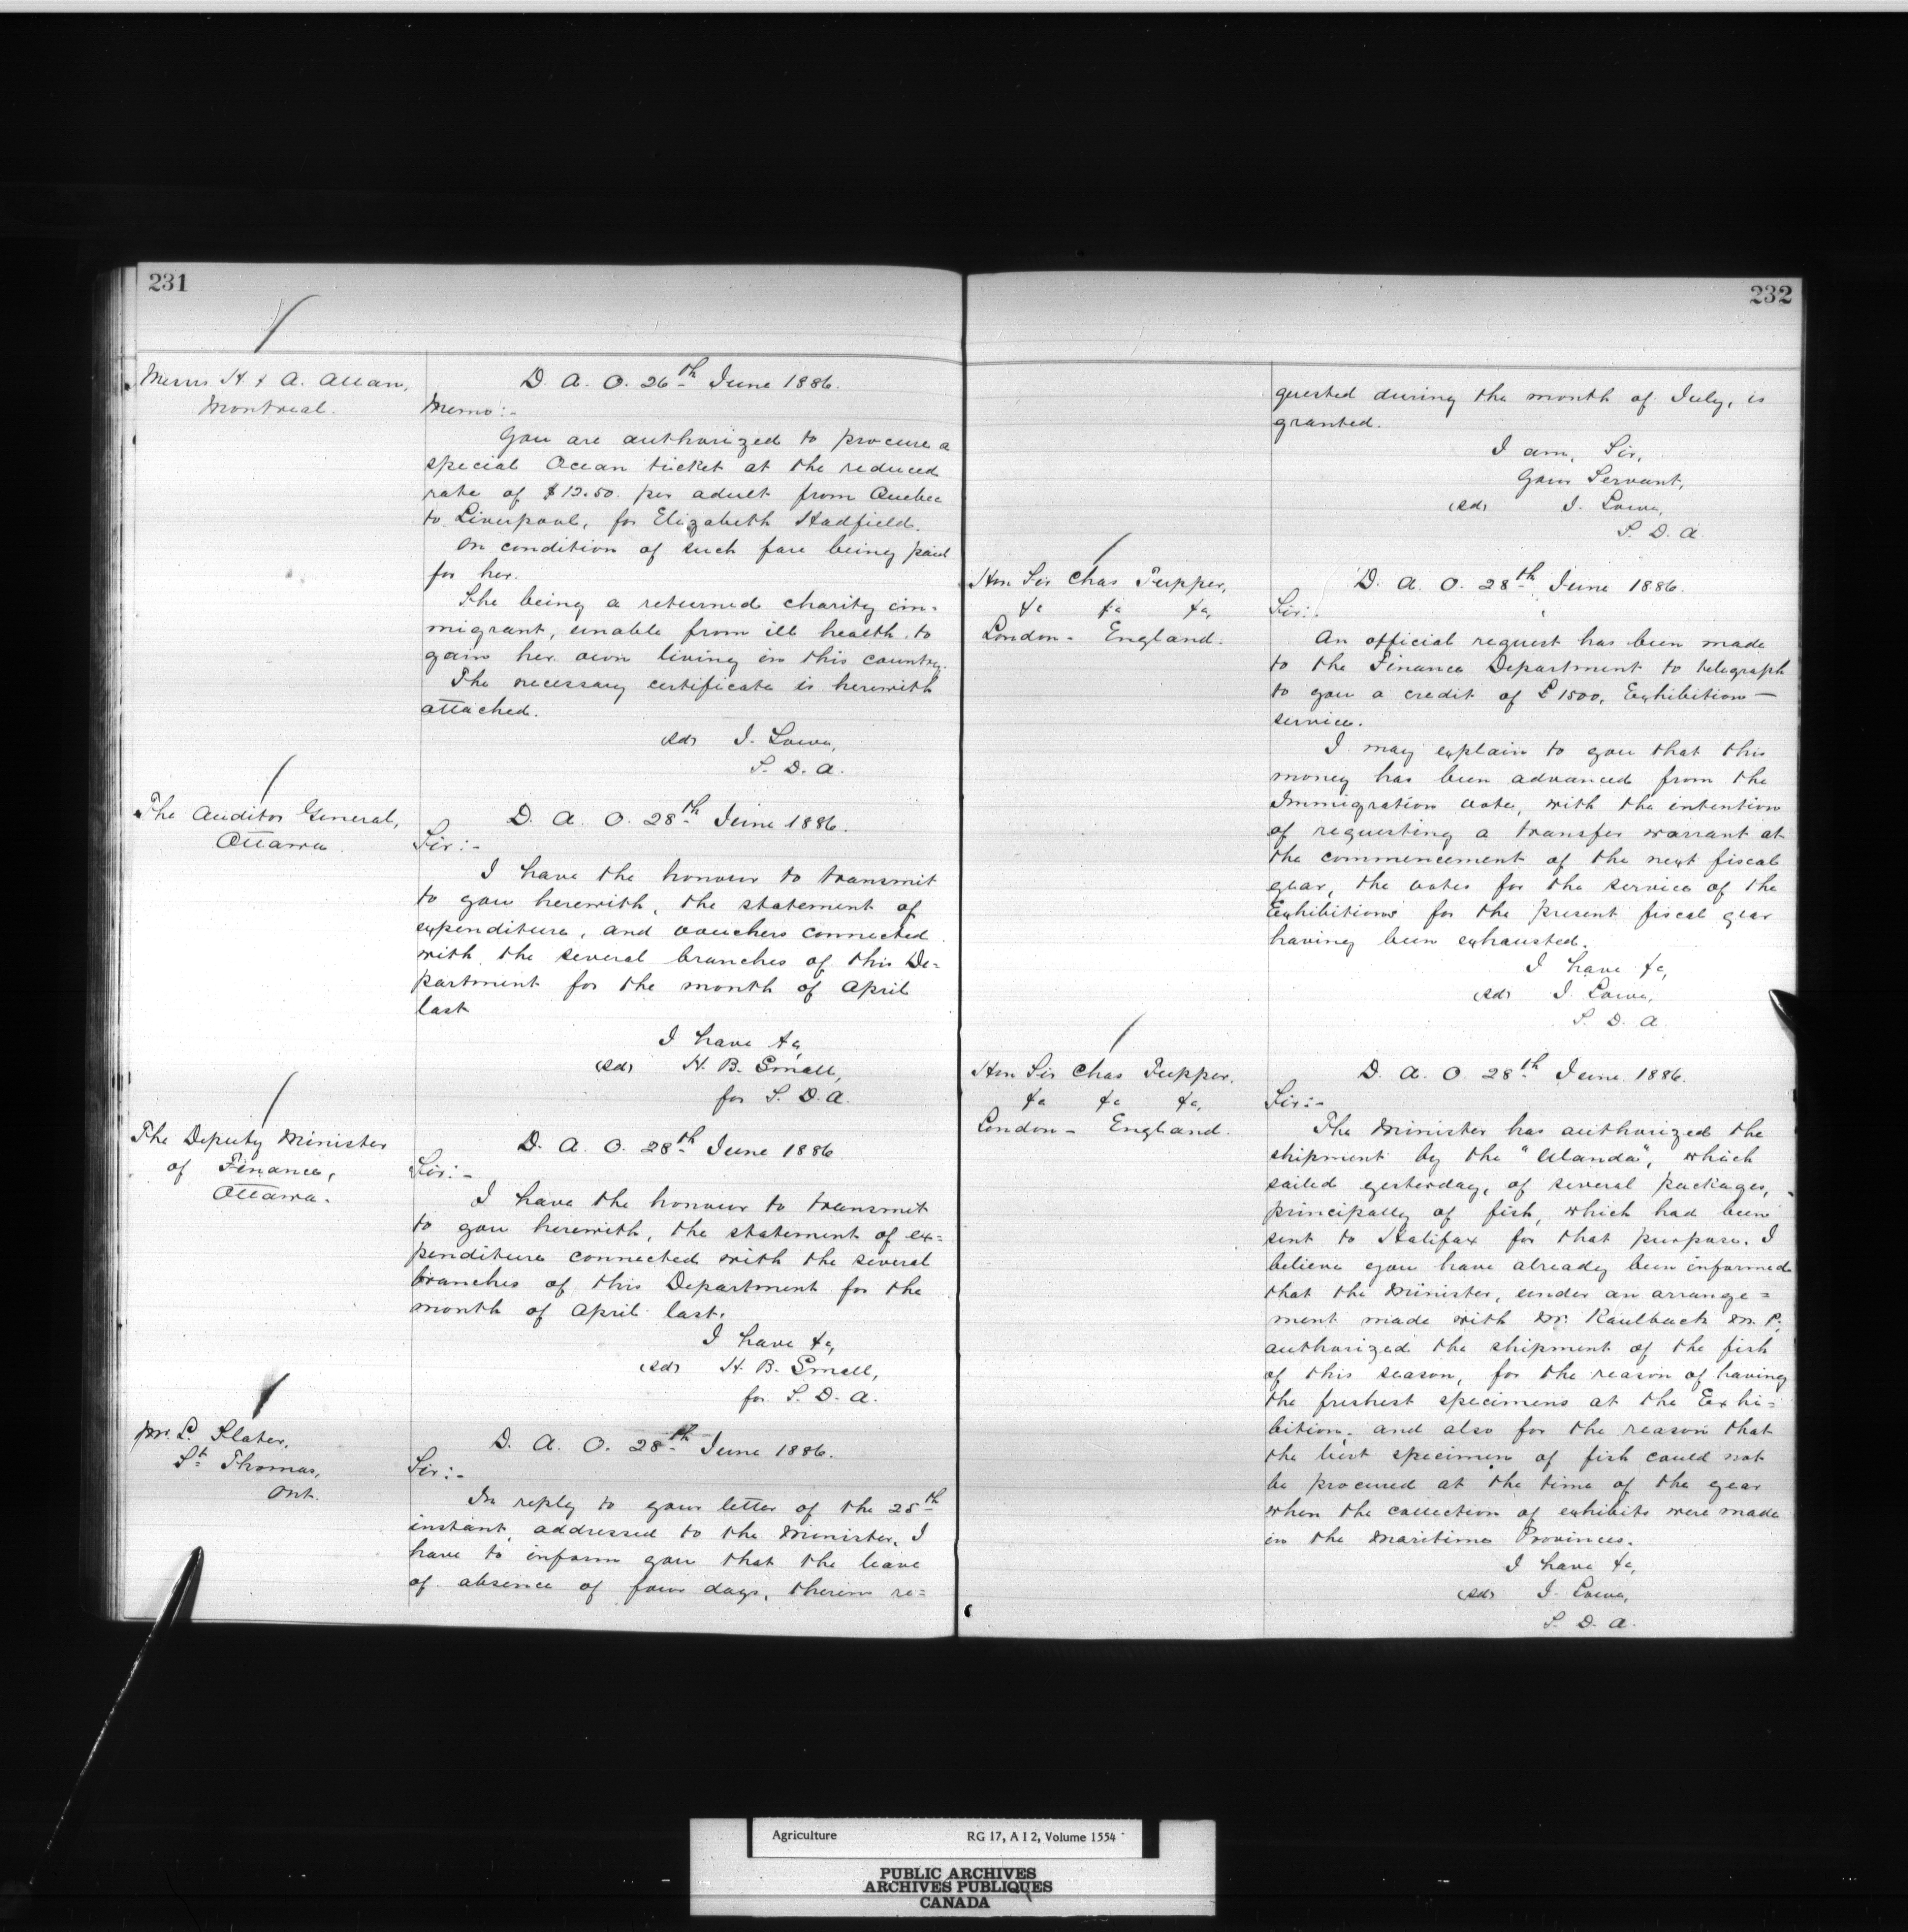 231
Messrs H. & A. Allan,
Montreal.
D. A. O. 26th June 1886.
Memo:-
You are authorized to procure a
special Ocean ticket at the reduced
rate of $12.50. per adult from Quebec
to Liverpool, for Elizabeth Hadfield.
On condition of such fare being paid
for her.
She being a returned charity im=
migrant, unable from ill health to
gain her own living in this country.
The necessary certificate is herewith
attached.
(Sd) J. Lowe,
S. D. A.
The Auditor General,
Ottawa.
D. A. O. 28th June 1886.
Sir:-
I have the honour to transmit
to you herewith, the statement of
expenditure, and vouchers connected
with the several branches of this De=
partment for the month of April
last
I have &c,
(Sd) H. B. Small,
for S. D. A.
The Deputy Minister
of Finance,
Ottawa.
D. A. O. 28th June 1886.
Sir:-
I have the honour to transmit
to you herewith, the statement of ex=
penditure connected with the several
branches of this Department for the
month of April last.
I have &c,
(Sd) H. B. Small,
for S. D. A.
Mr. L. Slater,
St. Thomas,
Ont.
D. A. O. 28th June 1886.
Sir:-
In reply to your letter of the 25th
instant, addressed to the Minister, I
have to inform you that the leave
of absence of four days, therein re=
232
quested during the month of July, is
granted.
I am, Sir,
Your Servant,
(Sd) J. Lowe,
S. D. A.
Hon Sir Chas Tupper,
&c &c &c,
London - England.
D. A. O. 28th June 1886.
Sir:-
An official request has been made
to the Finance Department to telegraph
to you a credit of £1500, Exhibition -
service.
I may explain to you that this
money has been advanced from the
Immigration vote, with the intention
of requesting a transfer warrant at
the commencement of the next fiscal
year, the votes for the service of the
Exhibitions for the present fiscal year
having been exhausted.
I have &c,
(Sd) J. Lowe,
S. D. A
Hon Sir Chas Tupper.
&c &c &c,
London - England.
D. A. O. 28th June 1886.
Sir:-
The Minister has authorized the
shipment by the "Ulunda", which
sailed yesterday, of several packages,
principally of fish, which had been
sent to Halifax for that purpose. I
believe you have already been informed
that the Minister, under an arrange=
ment made with Mr. Kaulback M. P.,
authorized the shipment of the fish
of this season, for the reason of having
the freshest specimens at the Exhi=
bition, and also for the reason that
the best specimens of fish could not
be procured at the time of the year
when the collection of exhibits were made
in the Maritime Provinces.
I have &c,
(Sd) J. Lowe,
S. D. A.
Agriculture RG 17, A I 2, Volume 1554
PUBLIC ARCHIVES
ARCHIVES PUBLIQUES
CANADA